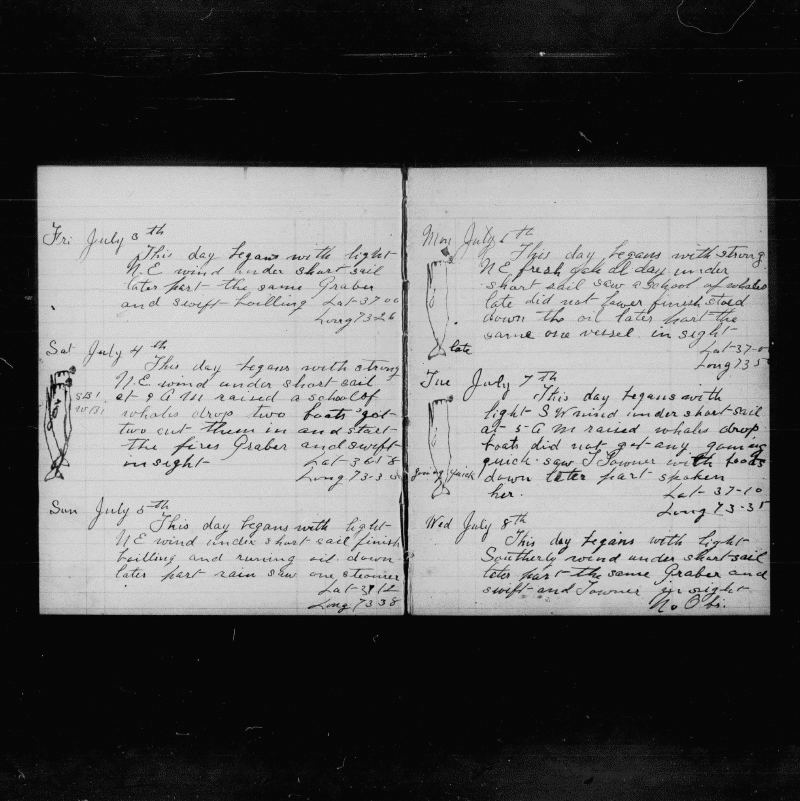 Fri July 3th
This day begans with light
N.E wind under short sail
later part the same Graber
and swift boilling Lat-37-00
Long 73-26
Sat July 4th
This day begans with strong
N.E wind under short sail
at 9 A M raised a school of
whales drop two boats got
two cut them in and start
the fires Graber and swift
in sight Lat-36-18
Long 73-3
SB1
WB1
Sun July 5th
This day begans with light
N E wind under short sail finish
boilling and runing oil down
later part rain saw one steamer
Lat-37 12
Long 73 38
Mon July 6th
This day begans with strong
NE fresh gale all day under
short sail saw a school of whales
late did not lower finish stoed
down the oil later part the
same one vessel in sight
late
Lat-37-0
Long 73 5
Tue July 7th
This day begans with
light S W wind under short sail
at 5 A M raised whales drop
boats did not get any going
quick saw J Towner with boats
going quick
down later part spoken
her. Lat-37-10
Long 73-35
Wed July 8th
This day begans with light
Southerly wind under short sail
later part the same Graber and
swift and Towner in sight
No Obs.